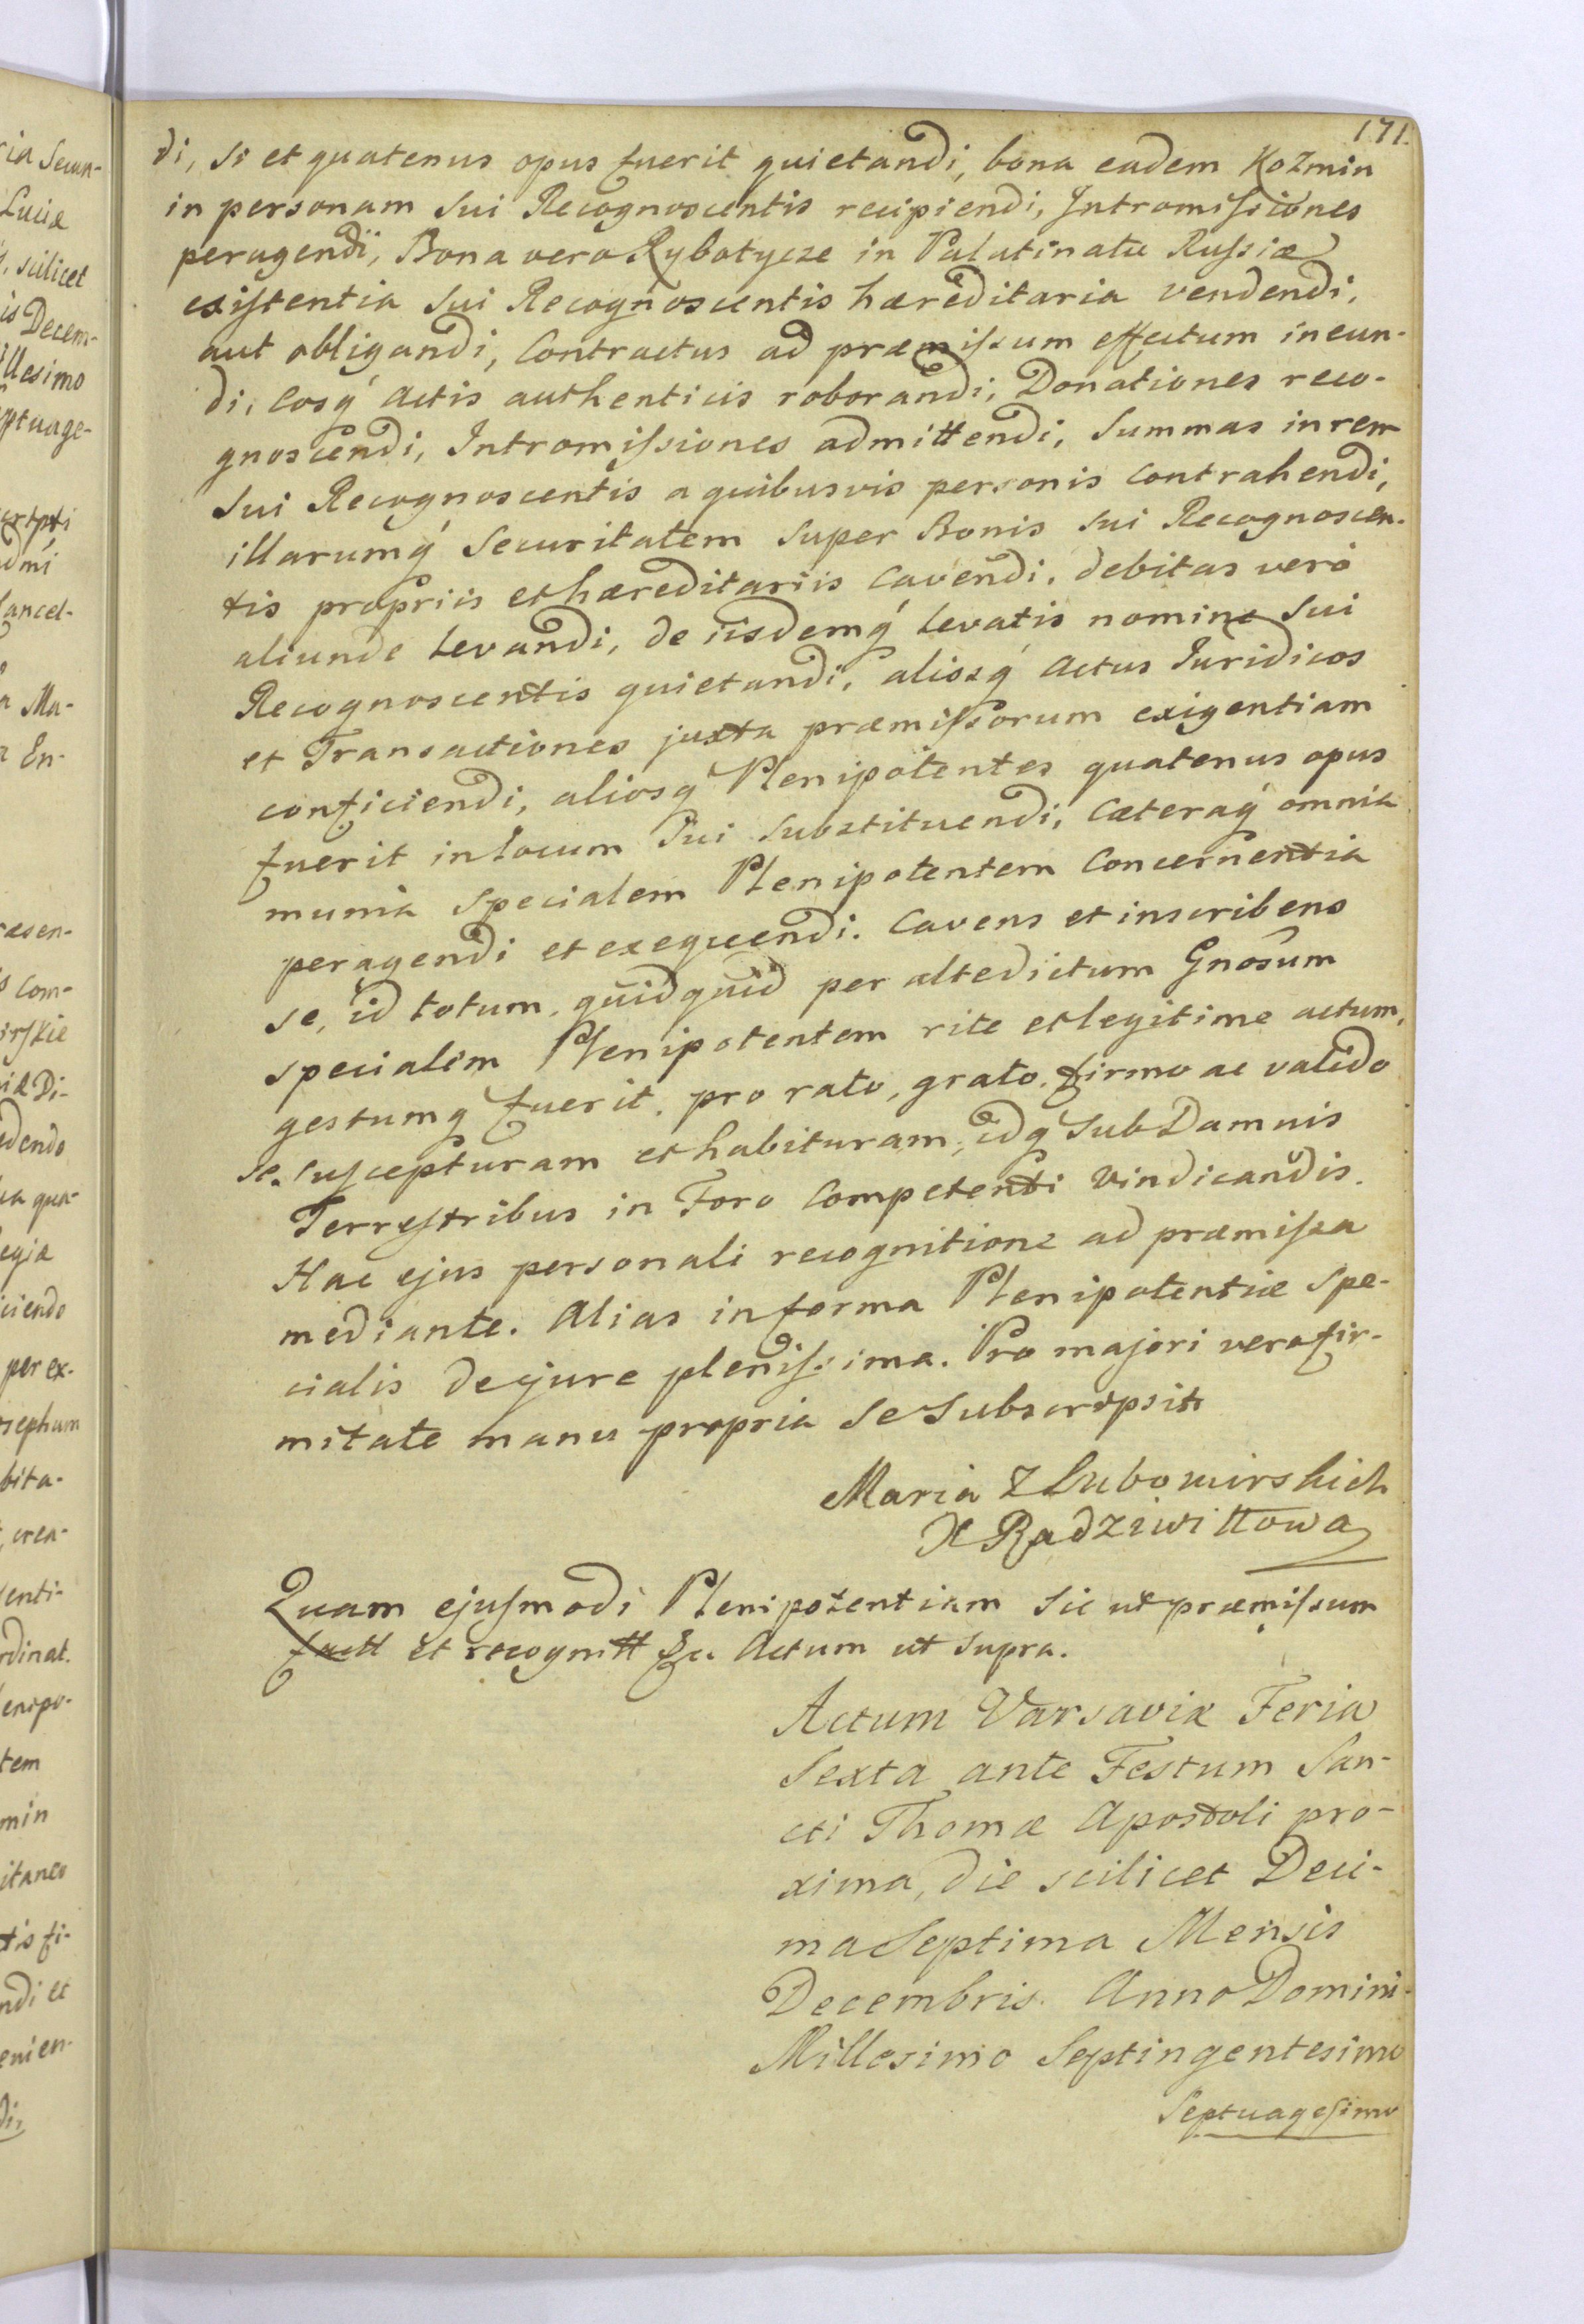 171.
di, si et quatenus opus fuerit quietandi, bona eadem Kozmin
in personam sui Recognoscentis recipiendi, Intromissiones
peragendi, Bona vero Rybotycze in Palatinatu Russiæ
existentia sui Recognoscentis hæreditaria vendendi,
aut obligandi, Contractus ad præmissum effectum ineun-
di, eosq́ Actis authenticis roborandi, Donationes reco-
gnoscendi, Intromissiones admittendi, Summas in rem
sui Recognoscentis a quibusvis personis contrahendi,
illarumq́ Securitatem super Bonis sui Recognoscen-
tis propriis et hæreditariis Cavendi, debitas verò
aliunde levandi, de iisdemq́ levatis nomine sui
Recognoscentis quietandi, aliosq́ Actus Juridicos
et Transactiones juxta præmissorum exigentiam
conficiendi, aliosq́ Plenipotentes quatenus opus
fuerit in locum sui substituendi, Cæteraq́ omnia
munia specialem Plenipotentem Concernentia
peragendi et exequendi. Cavens et inscribens
se, id totum, quidquid per altedictum Gnosum
specialem Plenipotentem rite et legitime actum,
gestumq fuerit, pro rato, grato, firmo ac valido
se suscepturam et habituram, idq sub Damnis
Terrestribus in Foro Competenti vindicandis.
Hac ejus personali recognitione ad præmissa
mediante. Alias in forma Plenipotentiæ Spe-
cialis de jure plenissima. Pro majori vero fir-
mitate manu propria se Subscripsit
Maria z Lubomirskich
X Radziwiłłowa
Quam ejusmodi Plenipotentiam sic ut præmissum
factt et recognitt Actum ut supra.
Actum Varsaviæ Feria
Sexta ante Festum San-
cti Thomæ Apostoli pro-
xima, die scilicet Deci-
ma Septima Mensis
Decembris Anno Domini
Millesimo Septingentesimo
Septuagesimo
ia Secun-
Luciæ
scilicet
is Decem-
illesimo
eptuage-
dmi
Cancel-
Ma-
En-
ræsen-
Com-
irskie
Di-
dendo
qua-
egiæ
iciendo
per ex-
osephum
bita-
crea-
enti-
rdinat.
enipo-
tem
min
itaneo
tis fi-
ndi et
enien-
di,